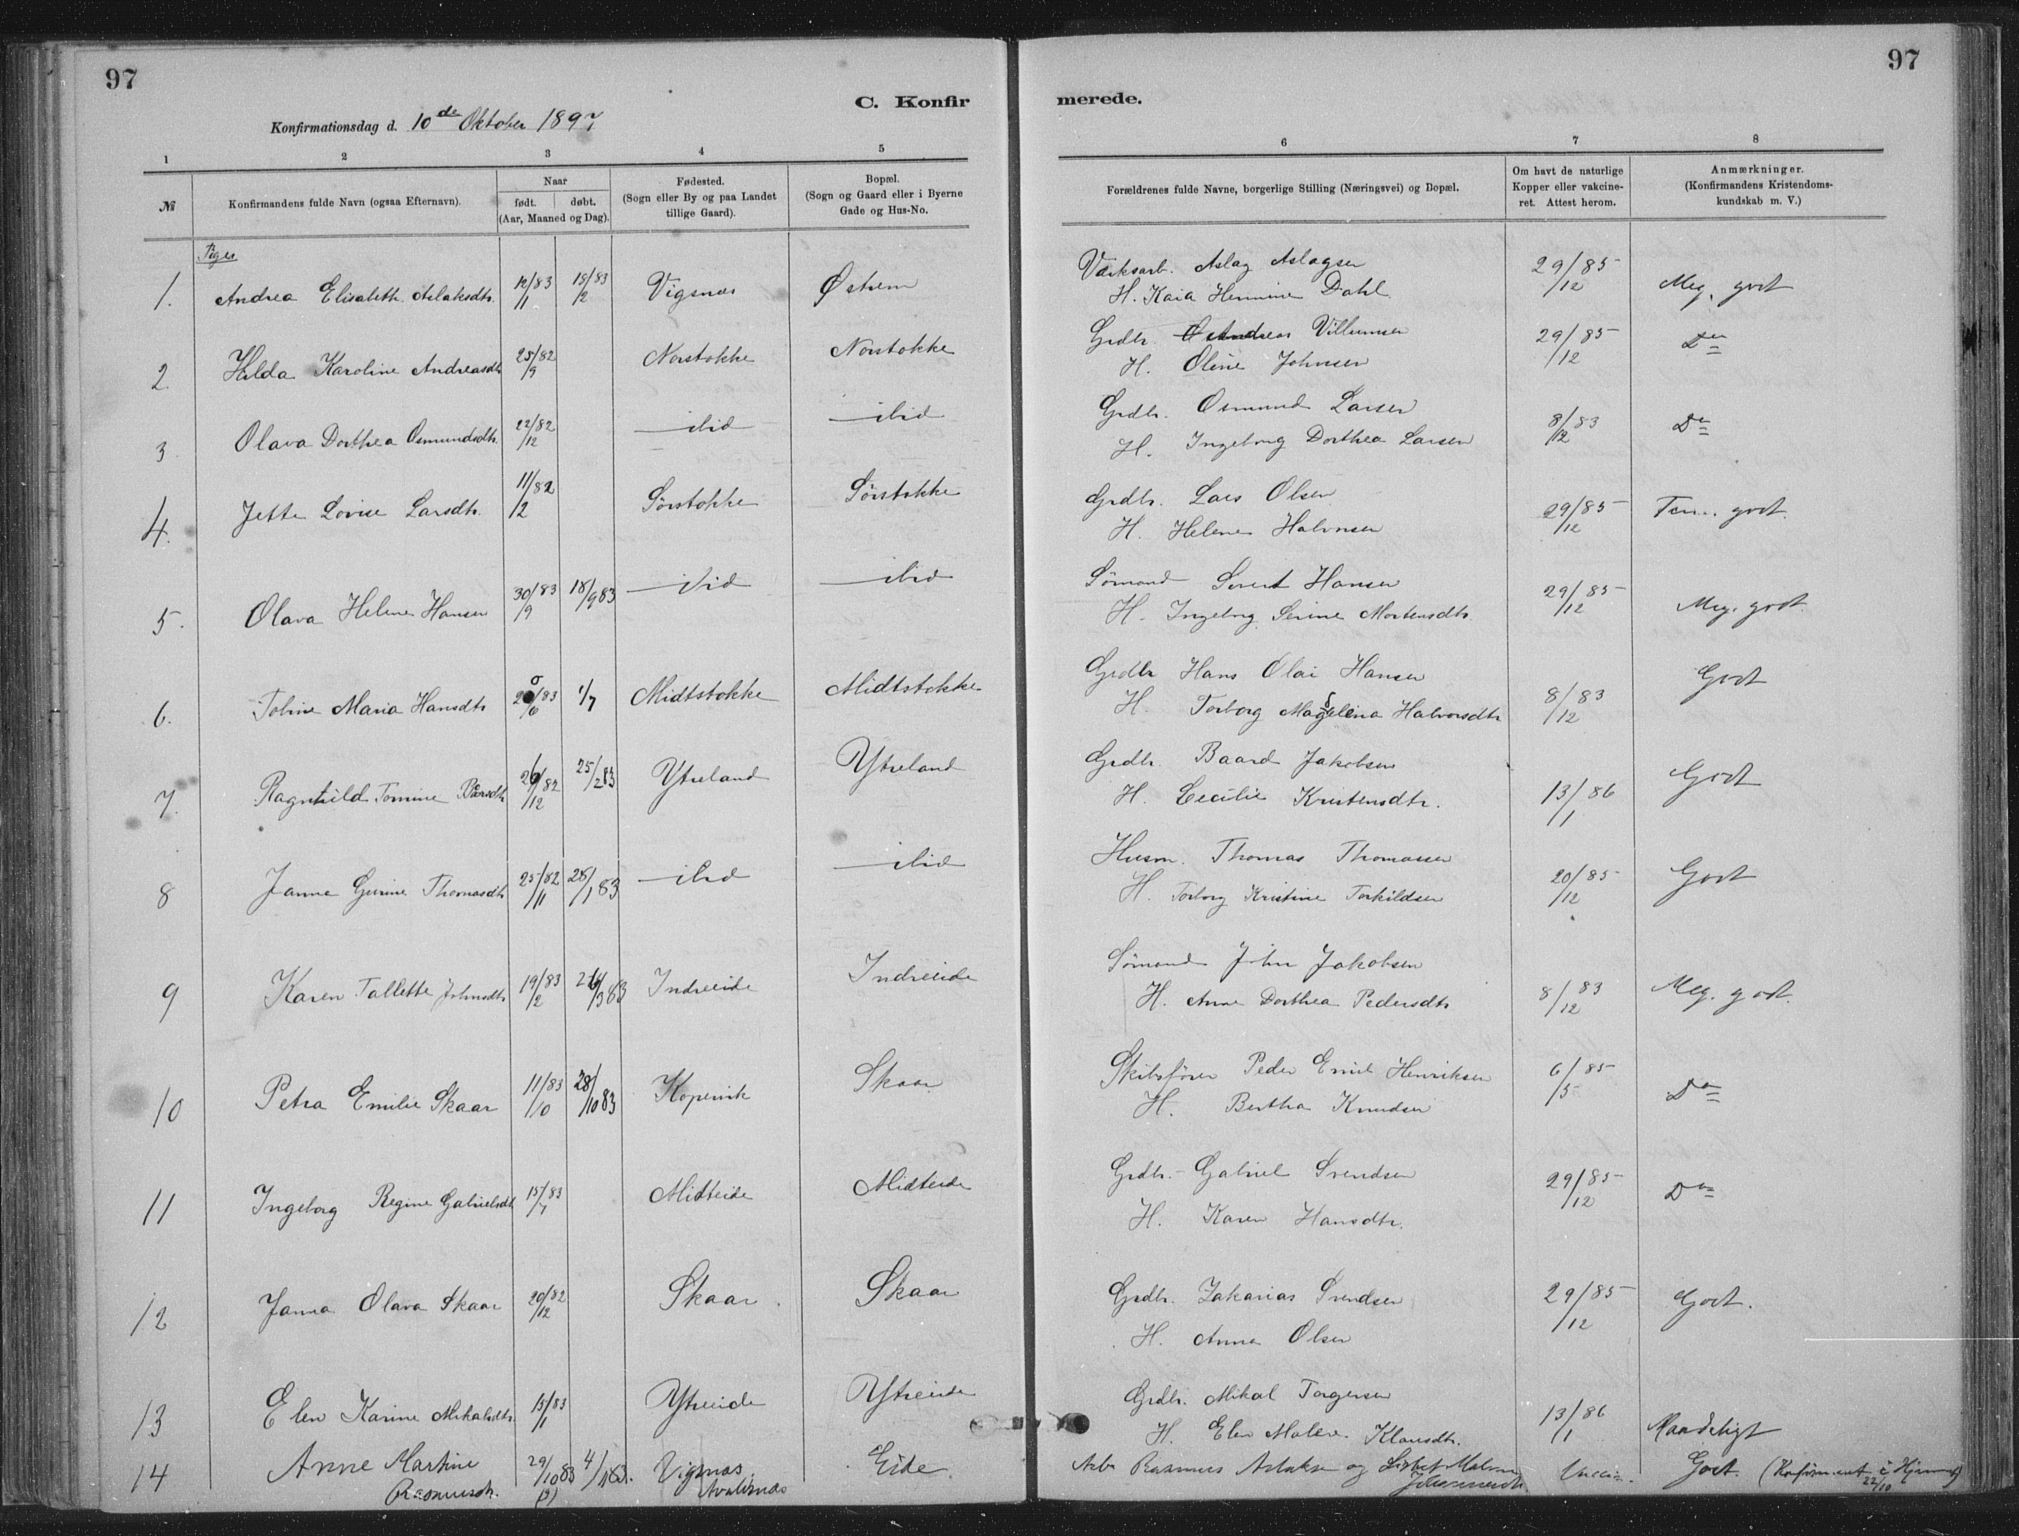 97
C. Konfir
merede.
97
Konfirmationsdag d. 10de Oktober 1897
1 2 3 4 5 6 7 8
№ Konfirmandens fulde Navn (ogsaa Efternavn). Naar født. døbt. (Aar, Maaned og Dag). Fødested. (Sogn eller By og paa Landet tillige Gaard). Bopæl. (Sogn og Gaard eller i Byerne Gade og Hus-No. Forældrenes fulde Navne, borgerlige Stilling (Næringsvei) og Bopæl. Om havt de naturlige Kopper eller vakcineret. Attest herom. Anmærkninger. (Konfirmandens Kristendomskundskab m. V.)
Piger
1. Andrea Elisabeth Aslaksdtr. 12/1 83 18/2 83 Vigsnæs Østrem Værksarb. Aslag Aslagsen 29/12 85 Meg. godt
H. Kaia Hermine Dahl
2. Hilda Karoline Andreasdtr 25/9 82 Norstokke Norstokke Grdbr. Andreas Villumsen 29/12 85 Do
H. Oline Johnsen
3 Olava Dorthea Osmundsdtr. 22/12 82 ibid ibid Grdbr. Osmund Larsen 8/12 83 Do
H. Ingeborg Dorthea Larsen
4. Jette Lovise Larsdtr. 11/12 82 Sørstokke Sørstokke Grdbr. Lars Olsen 29/12 85 godt.
H. Helene Halvorsen
5. Olava Helene Hansen 30/9 83 18/9 83 ibid ibid Sømand Sivert Hansen 29/12 85 Meg. godt.
H. Ingeborg Serine Mortensdtr.
6. Tobine Maria Hansdtr 20/6 83 1/7 Midtstokke Midtstokke Grdbr Hans Olai Hansen 8/12 83 Godt
H. Torborg Magdelena Halvorsdtr
7. Ragnhild Tomine Baarsdtr 26/12 82 25/2 83 Ytreland Ytreland Grdbr. Baard Jakobsen 13/1 86 Godt
H. Cecilie Kristensdtr.
8 Janna Gurine Thomasdtr 25/11 82 28/1 83 ibid ibid Husm. Thomas Thomassen 20/12 85 Godt
H. Torborg Kristine Torkildsen
9 Karen Tallette Johnsdtr 19/2 83 26/3 83 Indreeide Indreeide Sømand John Jakobsen 8/12 83 Meg. godt.
H. Anne Dorthea Pedersdtr
10 Petra Emilie Skaar 11/10 83 28/10 83 Kopervik Skaar Skibsfører Peder Emil Henriksen 6/5 85 Do
H. Bertha Knudsen
11 Ingeborg Regine Gabrielsdt. 15/7 83 Midteide Midteide Grdbr. Gabriel Svendsen 29/12 85 Do
H. Karen Hansdtr.
12 Janna Olava Skaar 20/12 82 Skaar. Skaar Grdbr. Zakarias Svendsen 29/12 85 Godt.
H. Anna Olsen
13 Elen Karine Mikalsdtr. 13/1 83 Ytreeide Ytreeide Grdbr. Mikal Torgersen 13/1 86 Maadeligt
H. Elen Malene Klausdtr.
14 Anne Martine 29/10 83 4/11 83. Vigsnæs Eide. Arb. Rasmus Aslaksen og Lisbet Malene Vaccin. Godt. (Konfirmeret i
Rasmusdtr. (?) Avaldsnæs 22/10